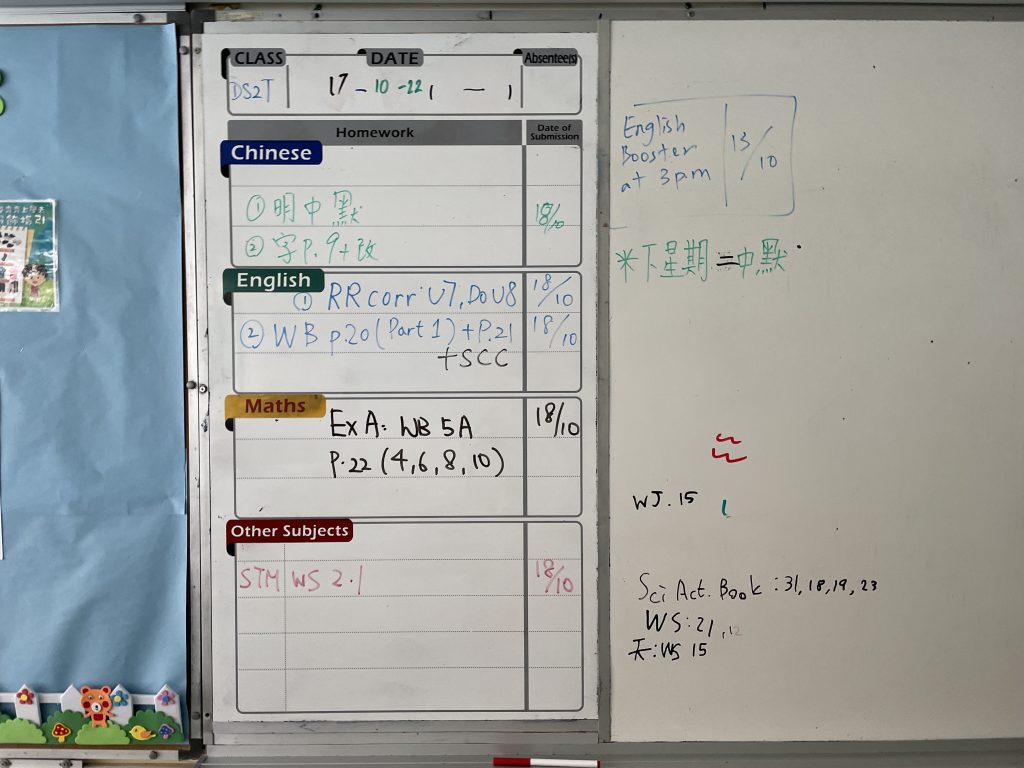 CLASS DATE Absentee(s)
DS2T 17-10-22
Homework Date of Submission
Chinese
① 明中默 18/10
② 字P.9+改
English
① RR corr: U7, Do U8 18/10
② WB p.20 (Part 1) + P.21 18/10
+SCC
Maths
Ex A: WB 5A 18/10
P.22 (4,6,8,10)
Other Subjects
STM WS 2.1 18/10
English 13/10
Booster
at 3pm
*下星期二中默
WJ. 15
Sci Act. Book : 31, 18, 19, 23
WS: 21, 12
天: WS 15